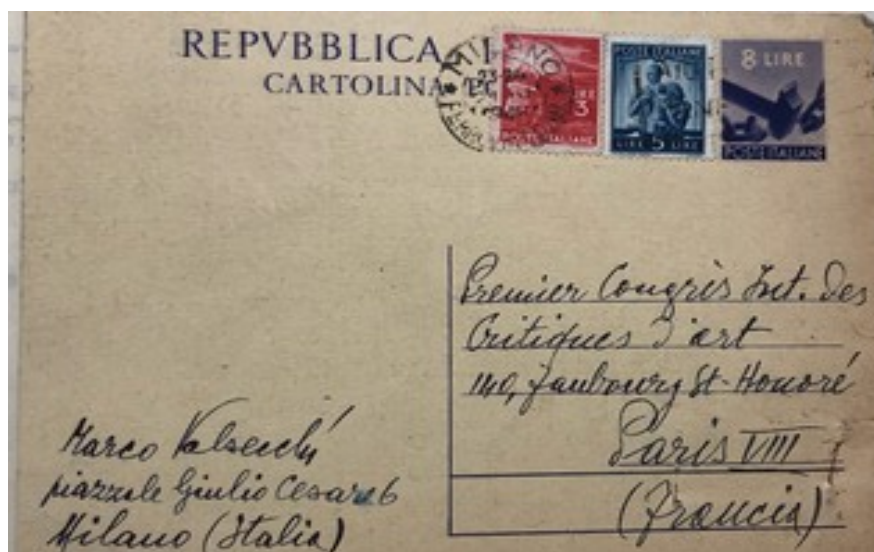 REPVBBLICA I
CARTOLINA
MILANO
23
FERR
LIRE 3
POSTE ITALIANE
POSTE ITALIANE
LIRE 5 LIRE
8 LIRE
POSTE ITALIANE
Premier Congrès Int. des
Critiques d'art
140, Faubourg St-Honoré
Paris VIII
(Francia)
Marco Valsecchi
piazzale Giulio Cesare 6
Milano (Italia)